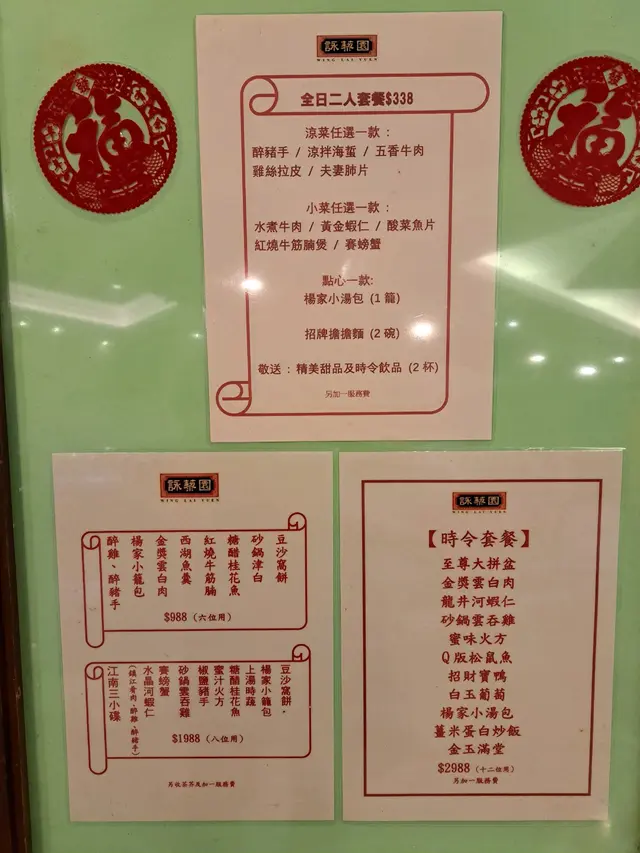 詠藜園
WING LAI YUEN
全日二人套餐$338
涼菜任選一款：
醉豬手 / 涼拌海蜇 / 五香牛肉
雞絲拉皮 / 夫妻肺片
小菜任選一款：
水煮牛肉 / 黃金蝦仁 / 酸菜魚片
紅燒牛筋腩煲 / 賽螃蟹
點心一款:
楊家小湯包 (1 籠)
招牌擔擔麵 (2 碗)
敬送 : 精美甜品及時令飲品 (2 杯)
另加一服務費
福
福
詠藜園
WING LAI YUEN
豆沙窩餅
砂鍋津白
糖醋桂花魚
紅燒牛筋腩
西湖魚羹
金獎雲白肉
楊家小籠包
醉雞、醉豬手
$988 (六位用)
豆沙窩餅
楊家小籠包
上湯時蔬
糖醋桂花魚
蜜汁火方
椒鹽豬手
砂鍋雲吞雞
賽螃蟹
水晶河蝦仁
(鎮江肴肉、醉雞、醉豬手)
江南三小碟
$1988 (八位用)
另收茶芥及加一服務費
詠藜園
WING LAI YUEN
【時令套餐】
至尊大拼盆
金獎雲白肉
龍井河蝦仁
砂鍋雲吞雞
蜜味火方
Q版松鼠魚
招財寶鴨
白玉葡萄
楊家小湯包
薑米蛋白炒飯
金玉滿堂
$2988 (十二位用)
另加一服務費